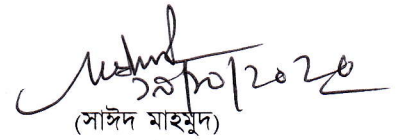 ১৯/১০/২০২০
(সাঈদ মাহমুদ)